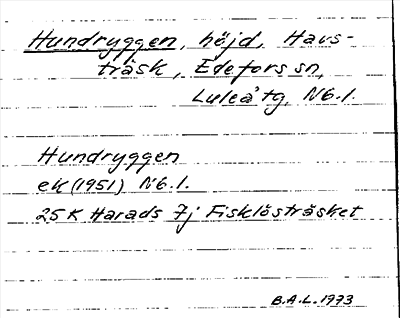 Hundryggen, höjd, Havs-
träsk, Edefors sn,
Luleå tg, Nb.l.
Hundryggen
ek (1951) Nb.l.
25 K Harads 7j Fisklösträsket
B.A.L. 1973